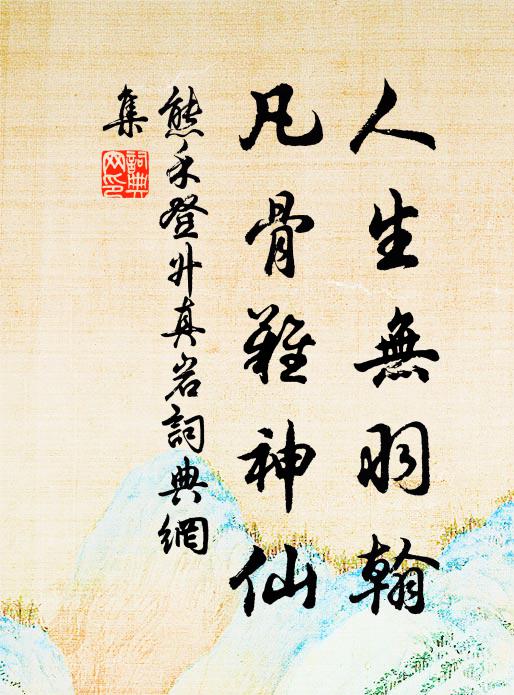 人生無羽翰
凡骨難神仙
熊禾登升真岩詞典網
集
詞典
网印